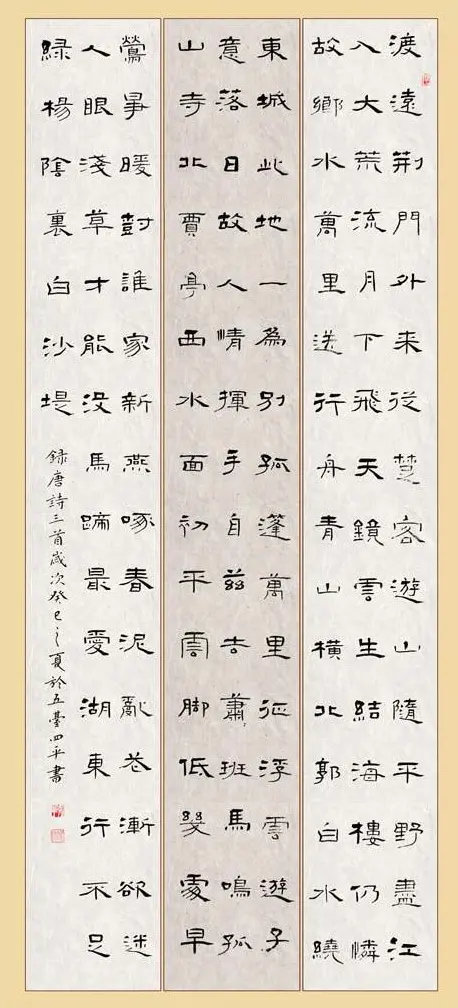 渡遠荊門外来從楚客遊山隨平野盡江
入大荒流月下飛天鏡雲生結海樓仍憐
故鄉水萬里送行舟青山橫北郭白水繞
東城此地一為別孤蓬萬里征浮雲遊子
意落日故人情揮手自茲去蕭班馬鳴孤
山寺北賈亭西水面初平雲脚低幾處早
鶯爭暖尌誰家新燕啄春泥亂花漸欲迷
人眼淺草才能沒馬蹄最愛湖東行不足
綠楊陰裏白沙堤
錄唐詩三首歲次癸巳之夏於五臺四平書